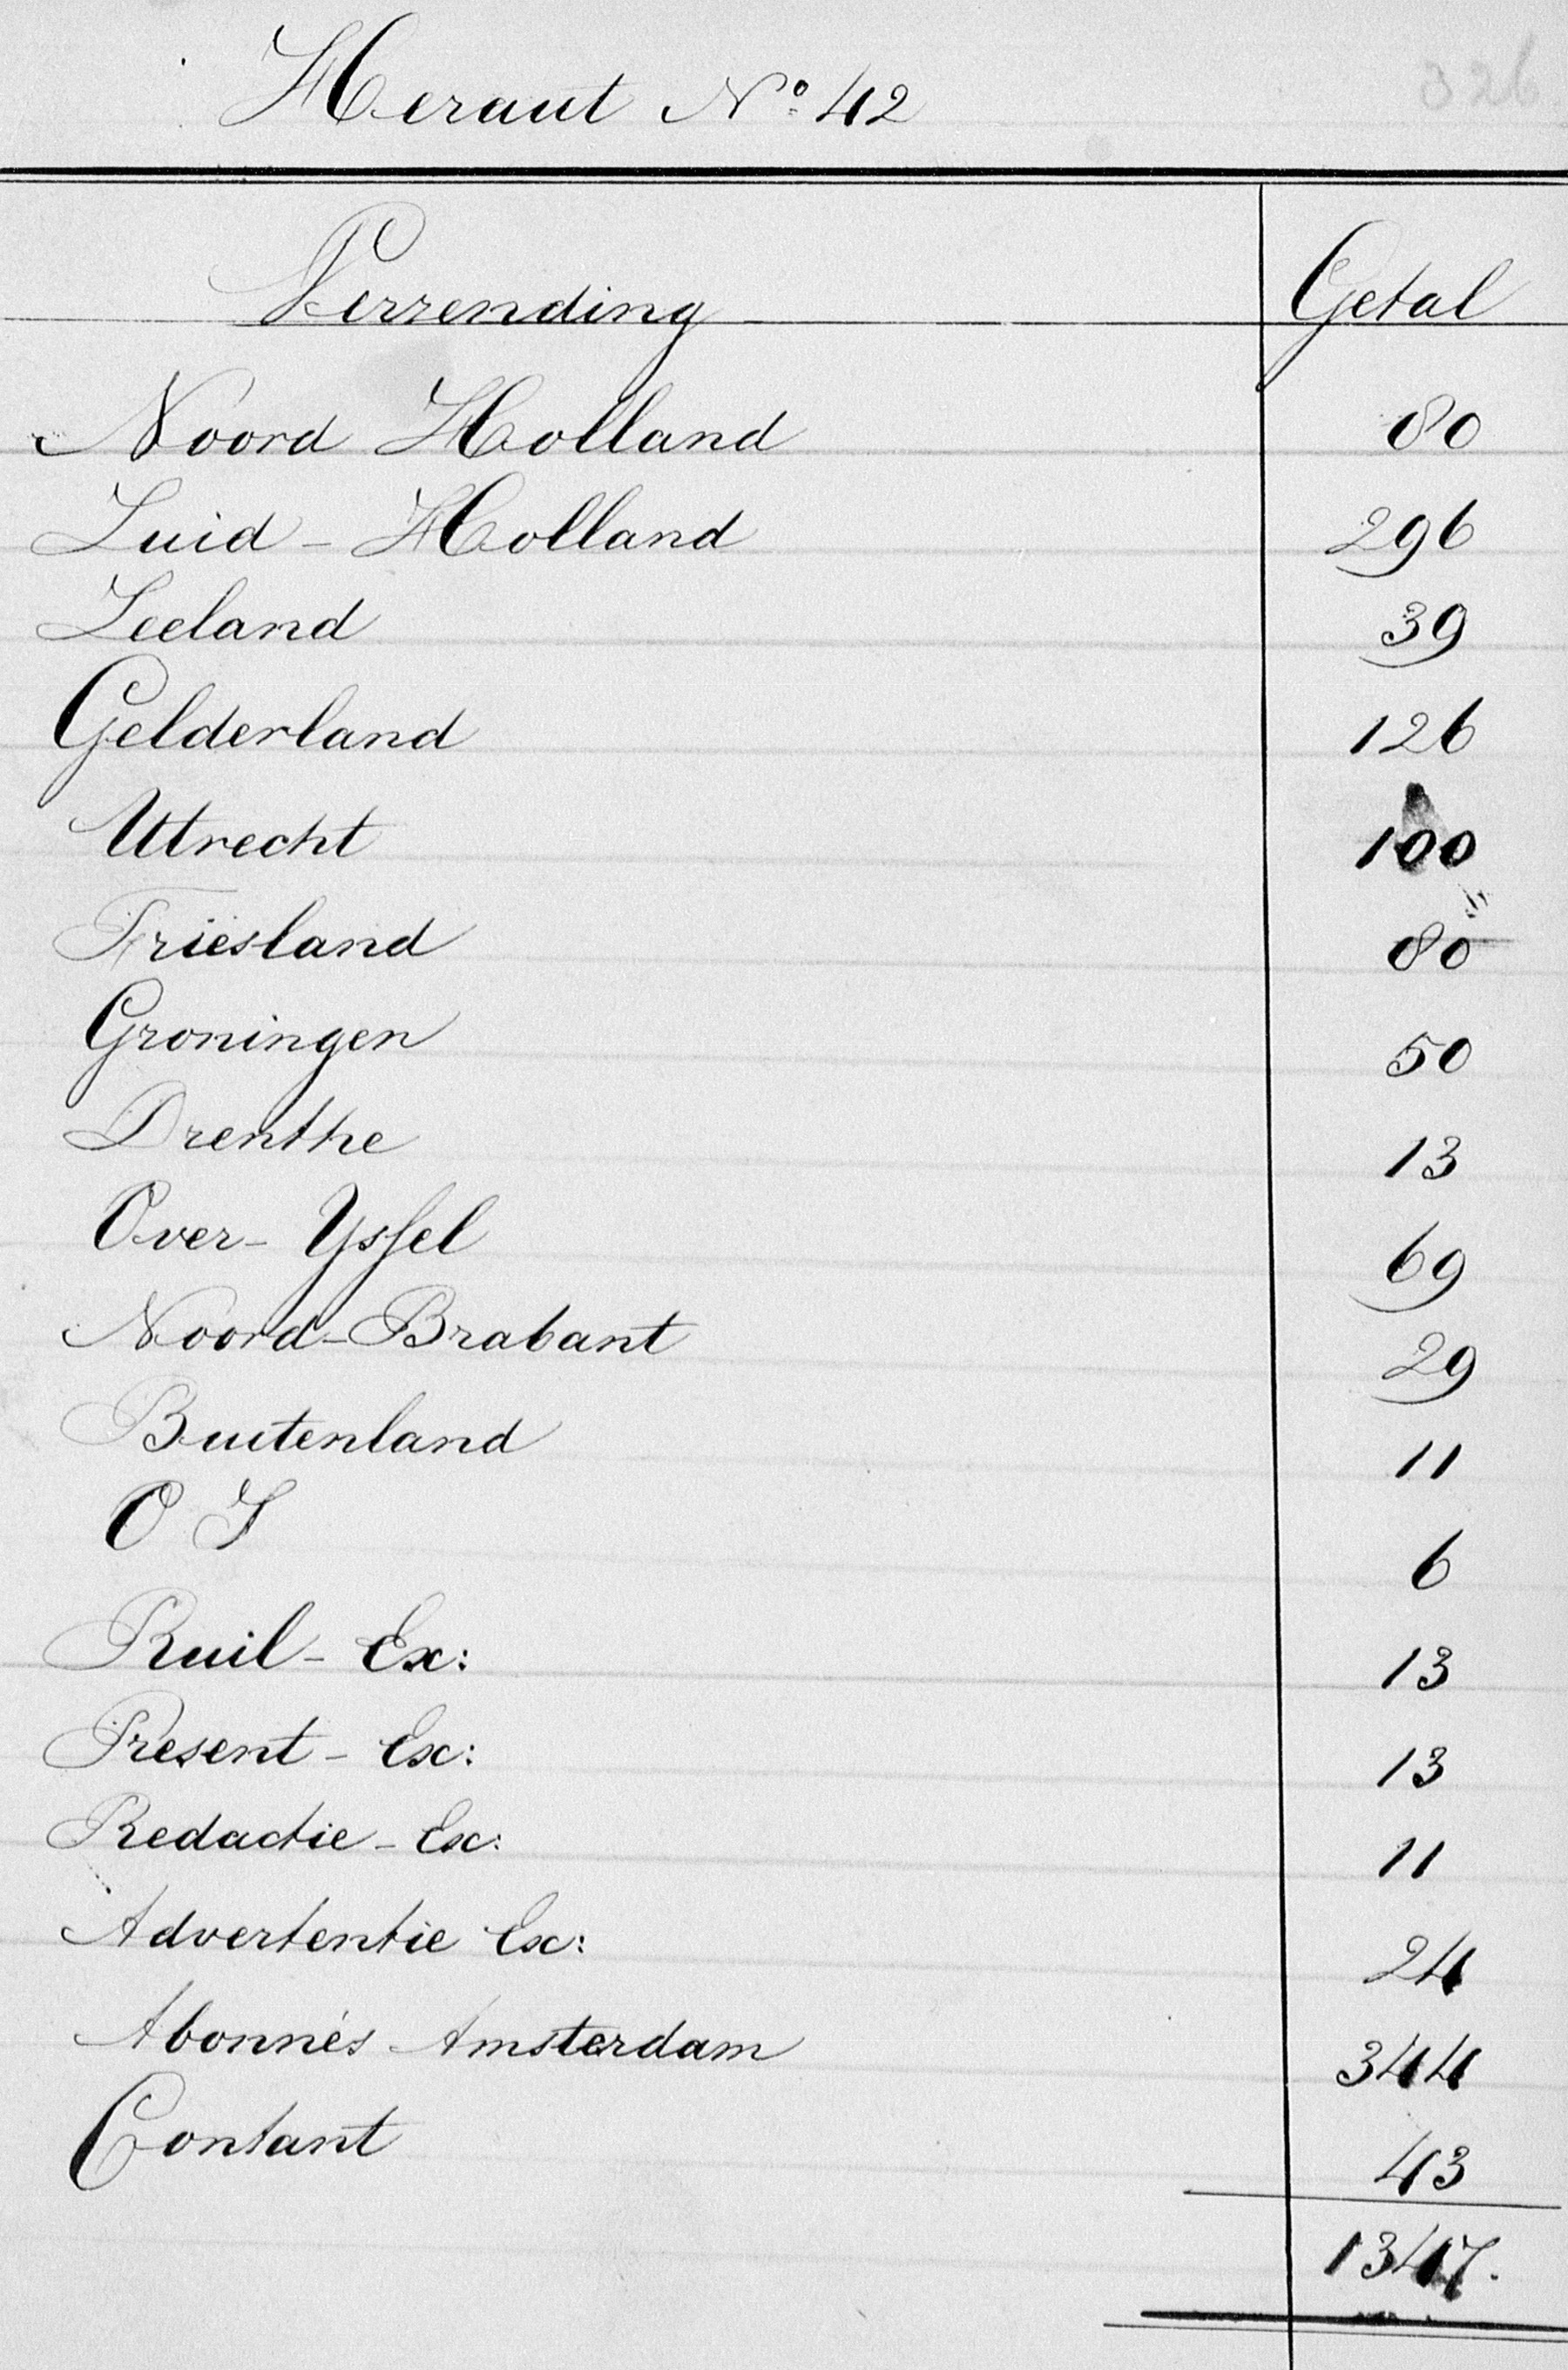 Heraut No. 42
326
Verzending Getal
Noord Holland 80
Zuid - Holland 296
Zeeland 39
Gelderland 126
Uttrecht 100
Friesland 80
Groningen 50
Drenthe 13
Over- Yssel 69
Noord-Brabant 29
Buitenland 11
O I 6
Ruil - Ex: 13
Present - Ex: 13
Redactie - Ex: 11
Advertentie Ex: 24
Abonnés Amsterdam 344
Contant 43
1347.